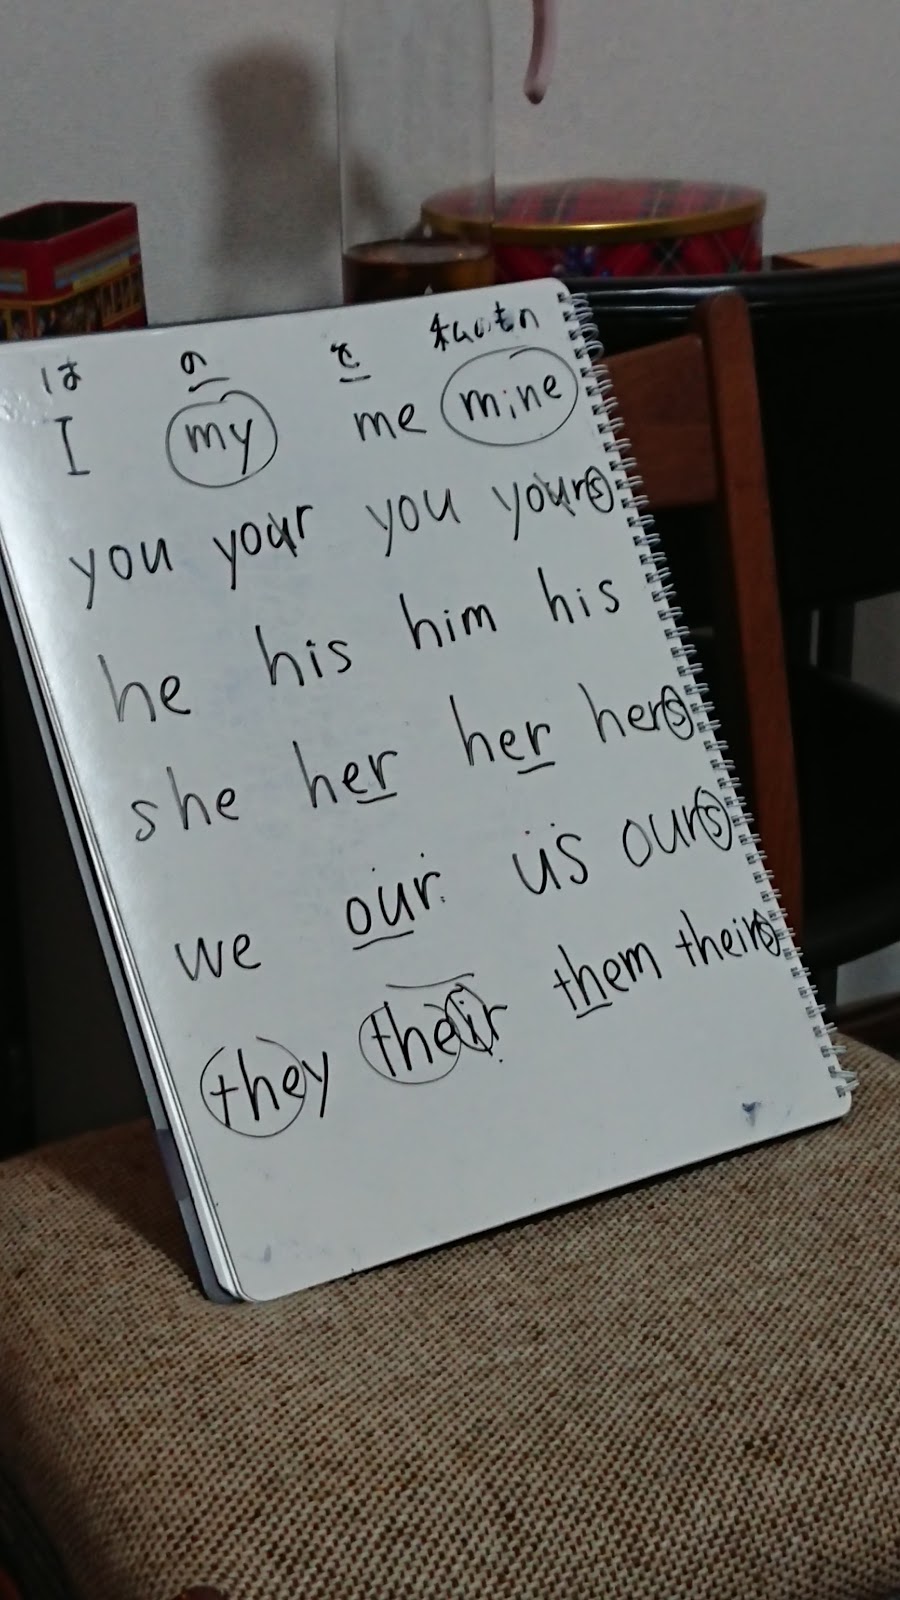 は の を 私のもの
I my me mine
you your you yours
he his him his
she her her hers
we our us ours
they their them theirs